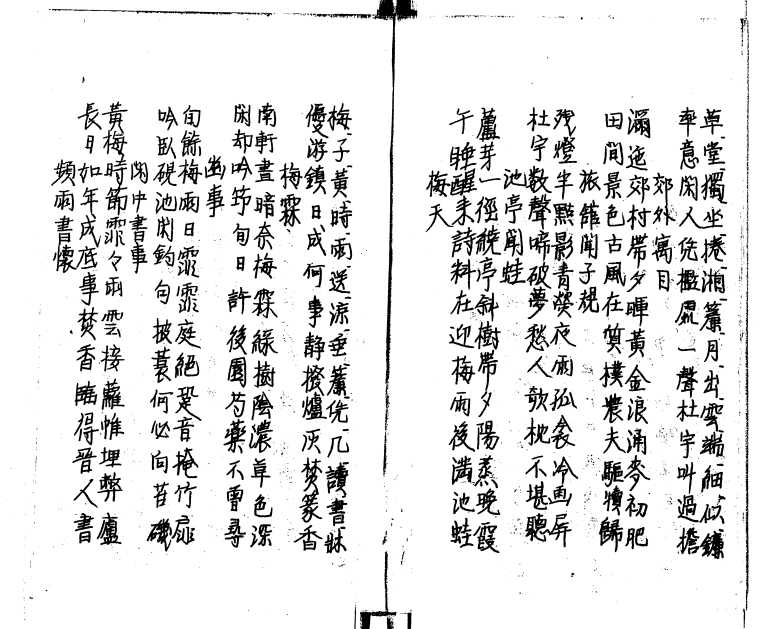 草堂獨坐捲湘簾月出雲端細似鎌
率意閑人凭檻處一聲杜宇叫過檐
郊外寓目
滿迤郊村帶夕暉黃金浪涌麥初肥
田間景色古風在質樸農夫驅犢歸
旅館聞子規
殘燈半點影青熒夜雨孤衾冷画屏
杜宇数聲啼破夢愁人欹枕不堪聽
池亭聞蛙
蘆芽一徑繞亭斜樹帶夕陽蒸晚霞
午睡醒来詩料在迎梅雨後滿池蛙
梅天
梅子黃時雨送涼垂簾凭几讀書牀
優游鎮日成何事静撥爐灰焚篆香
梅霖
南軒晝暗奈梅霖綠樹陰濃草色深
閑却吟笻旬日許後園芍藥不曾尋
幽事
旬餘梅雨日霏霏庭絕跫音掩竹扉
吟臥硯池閑釣句披蓑何必向苔磯
閑中書事
黃梅時節霏々雨雲接蘿帷埋弊廬
長日如年成底事焚香臨得晉人書
頻雨書懷